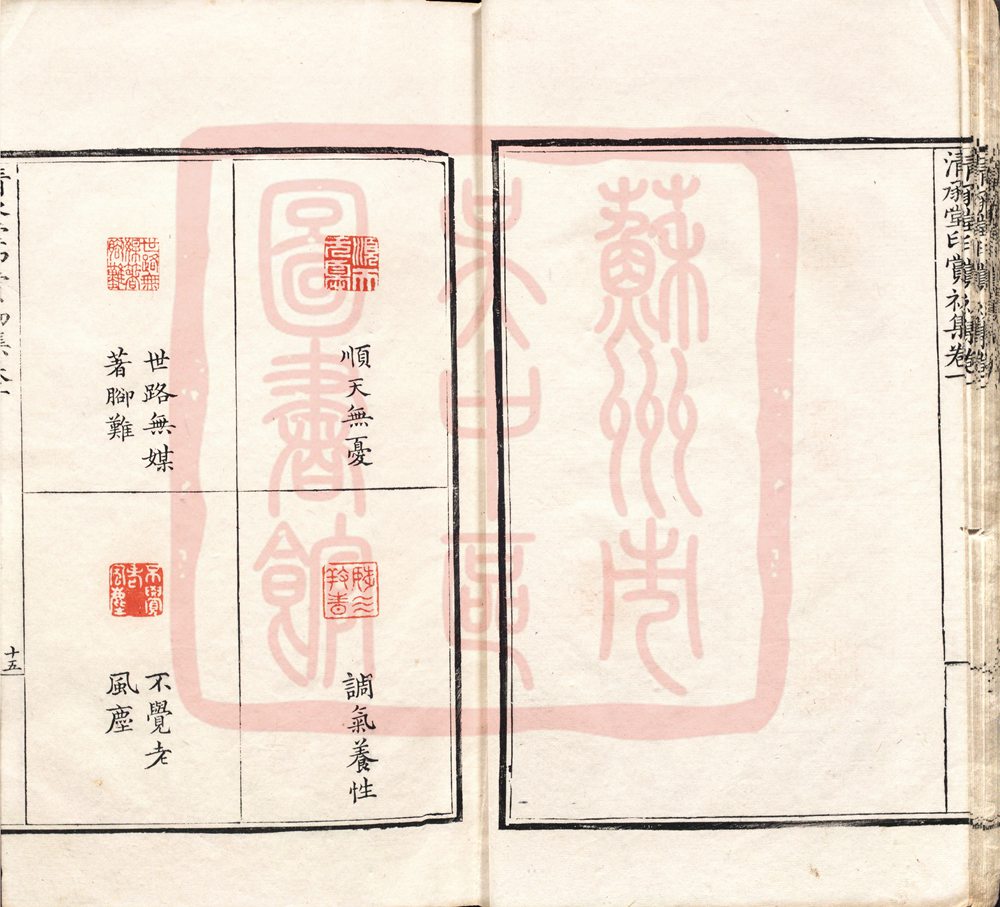 清承堂印賞初集卷一
蘇州市
吳中區
圖書館
順天無憂
調氣養性
世路無媒
著腳難
不覺老
風塵
十五